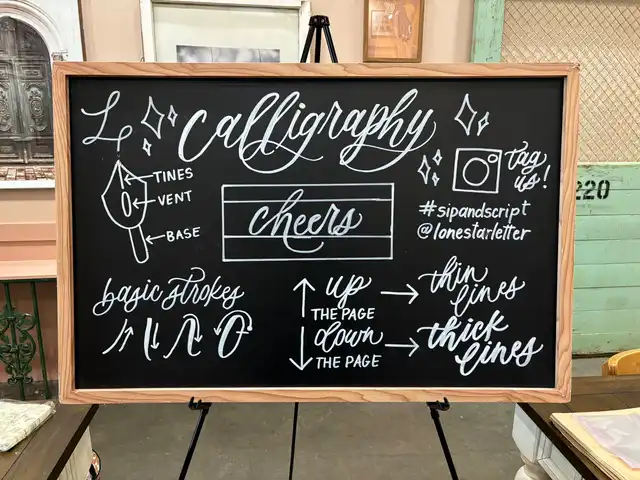 L
calligraphy
TINES
VENT
BASE
cheers
tag
us!
#sipandscript
@lonestarletter
basic strokes
up
THE PAGE
thin
lines
down
THE PAGE
thick
lines
220